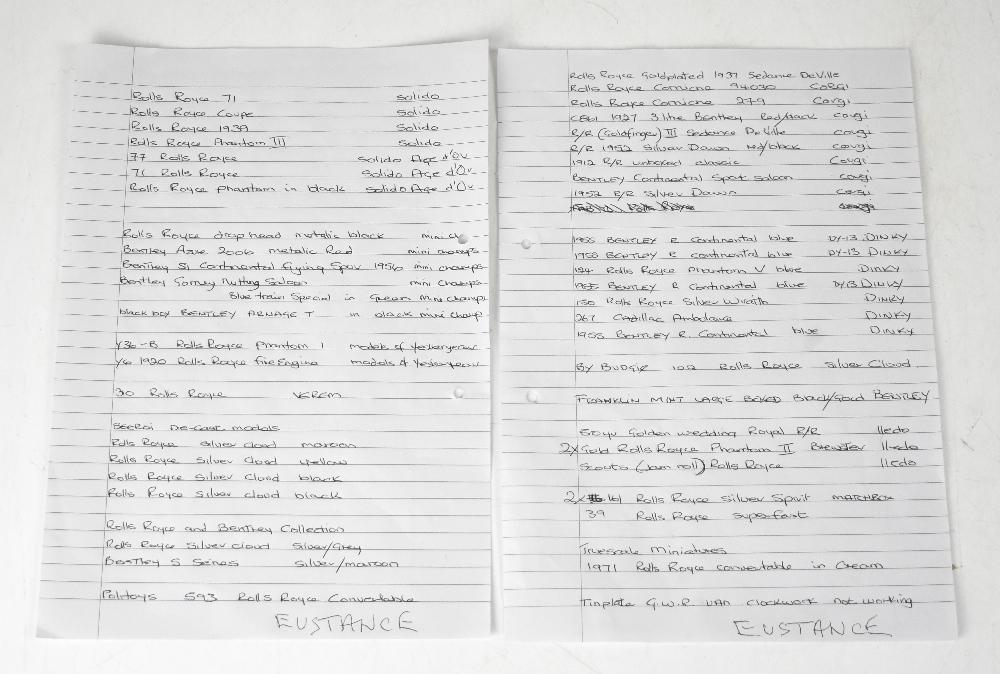 Rolls Royce 71 Solido
Rolls Royce Coupe Solido
Rolls Royce 1939 Solido
Rolls Royce Phantom III Solido
77 Rolls Royce Solido Age d'Or
71 Rolls Royce Solido Age d'Or
Rolls Royce Phantom in black Solido Age d'Or
Rolls Royce drophead metalic black mini ch
Bentley Azure 2006 metalic Red mini champs
Bentley S1 Continental Flying Spur 1956 mini champs
Bentley Gurney Nutting Saloon mini champs
Blue train Special in Green mini champs
black box BENTLEY ARNAGE T in black mini champ
Y36-B Rolls Royce Phantom 1 models of Yesteryear
Y6 1920 Rolls Royce Fire Engine models of Yesteryear
30 Rolls Royce VEREM
De-Cast models
Rolls Royce Silver Cloud maroon
Rolls Royce Silver Cloud yellow
Rolls Royce Silver Cloud black
Rolls Royce Silver Cloud black
Rolls Royce and Bentley Collection
Rolls Royce Silver Cloud Silver/Grey
Bentley S Series Silver/maroon
Politoys 593 Rolls Royce Convertable
EUSTANCE
Rolls Royce Goldplated 1937 Sedance DeVille
Rolls Royce Corniche 94030 CORGI
Rolls Royce Corniche 279 Corgi
C861 1927 3 litre Bentley Red/black corgi
R/R (Goldfinger) III Sedance DeVille corgi
R/R 1952 Silver Dawn red/black corgi
1912 R/R unboxed classic Corgi
BENTLEY Continental Sport saloon corgi
1952 R/R Silver Dawn corgi
1955 BENTLEY R Continental blue DY-13 DINKY
1955 BENTLEY R continental blue DY-13 DINKY
124 Rolls Royce Phantom V blue DINKY
1955 BENTLEY R Continental blue DY13 DINKY
150 Rolls Royce Silver Wraith DINKY
267 Cadillac Ambulance DINKY
1955 BENTLEY R. Continental blue DINKY
By BUDGIE 102 Rolls Royce Silver Cloud
FRANKLIN MINT LARGE BOXED Black/Gold BENTLEY
Golden wedding Royal R/R lledo
2x Gold Rolls Royce Phantom II Brewster lledo
Scouts (Jam roll) Rolls Royce lledo
2x 161 Rolls Royce Silver Spirit MATCHBOX
39 Rolls Royce Superfast
Truescale Miniatures
1971 Rolls Royce convertable in Cream
Tinplate G.W.R VAN clockwork not working
EUSTANCE